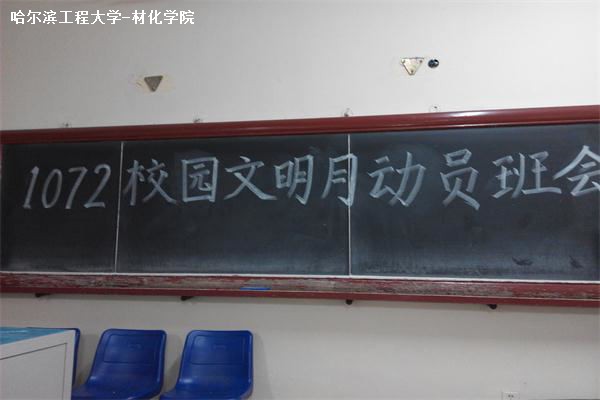 哈尔滨工程大学-材化学院
1072校园文明月动员班会